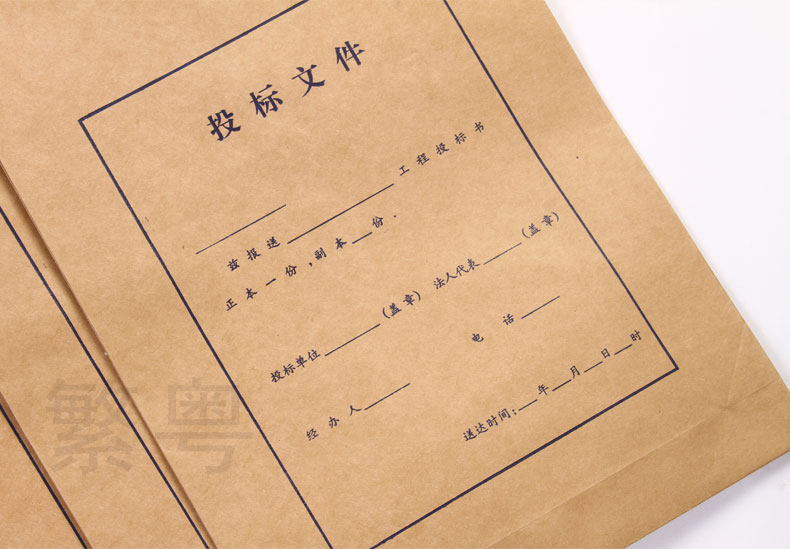 投标文件
______
兹报送__________工程投标书
正本一份,副本__份.
投标单位______(盖章) 法人代表____(盖章)
经办人_____ 电话____
送达时间:__年__月__日__时
繁粤